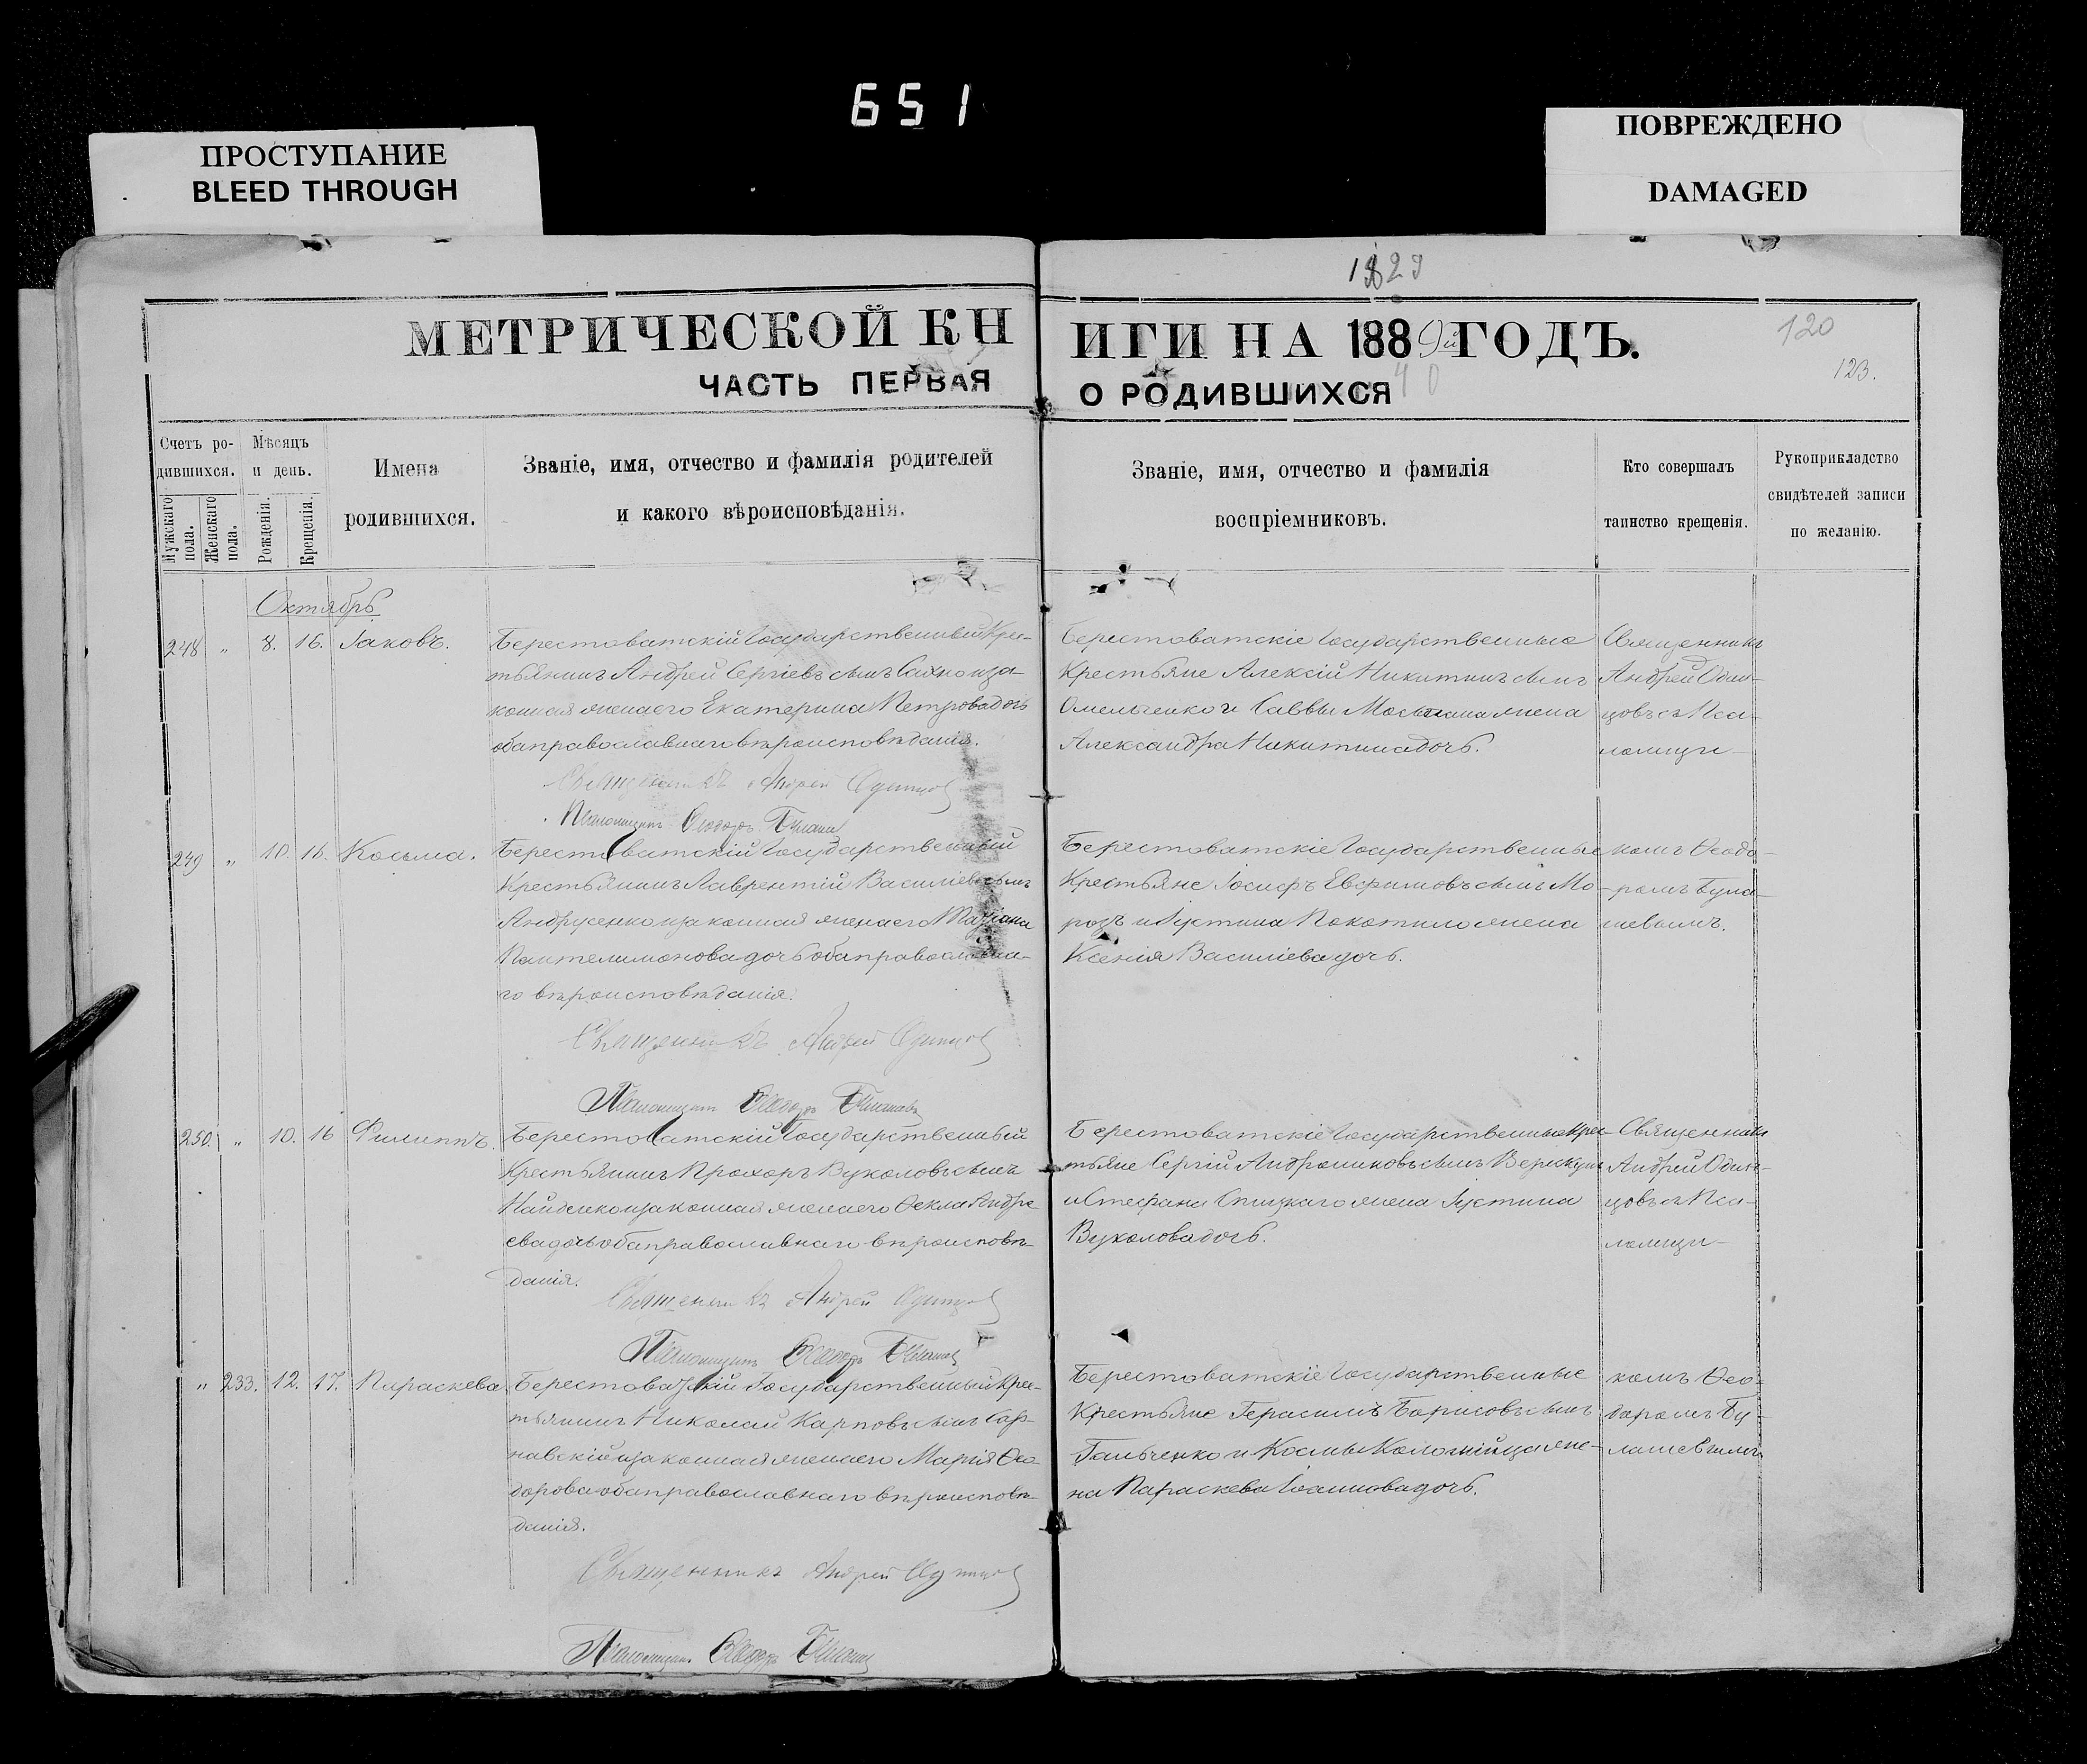 651
ПРОСТУПАНИЕ
BLEED THROUGH
ПОВРЕЖДЕНО
DAMAGED
1829
МЕТРИЧЕСКОЙ КНИГИ НА 1889й ГОДЪ.
120
123.
ЧАСТЬ ПЕРВАЯ О РОДИВШИХСЯ
40
Счетъ ро-
дившихся.
Мужскаго пола.
Женскаго пола.
Мѣсяцъ
и день.
Рожденія.
Крещенія.
Имена
родившихся.
Званіе, имя, отчество и фамилія родителей
и какого вѣроисповѣданія.
Званіе, имя, отчество и фамилія
воспріемниковъ.
Кто совершалъ
таинство крещенія.
Рукоприкладство
свидѣтелей записи
по желанію.
Октябрь
248 " 8. 16. Іаковъ.
Берестоватскій Государственный Крес-
тьянинъ Андрей Сергіевъ сынъ Сахно и за-
конная жена его Екатерина Петрова дочь
оба православнаго вѣроисповѣданія.
Священникъ Андрей Одинцов
Псаломщикъ Ѳеодоръ
Берестоватскіе Государственные
Крестьяне Алексій Никитинъ сынъ
Омельченко и Саввы жена
Александра Никитина дочь.
Священникъ
Андрей Один-
цовъ съ Пса-
ломщи-
249 " 10. 16. Косьма.
Берестоватскій Государственный
Крестьянинъ Лаврентій Василіевъ сынъ
Андрусенко и законная жена его Татіана
Пантелимонова дочь оба православна-
го вѣроисповѣданія.
Священникъ Андрей Одинцов
Псаломщикъ Ѳеодоръ
Берестоватскіе Государственные
Крестьяне Іосифъ Евфимовъ сынъ Мо-
розъ и Іустина Покотило жена
Ксенія Василіева дочь.
комъ Ѳеодо-
ромъ
250. " 10. 16 Филиппъ.
Берестоватскій Государственный
Крестьянинъ Прохоръ Вуколовъ сынъ
Найденко и законная жена его Ѳекла Андре-
ева дочь оба православнаго вѣроисповѣ-
данія.
Священникъ Андрей Одинцов
Псаломщикъ Ѳеодоръ
Берестоватскіе Государственные Крес-
тьяне Сергій Андрониковъ сынъ Верескунъ
и Стефана Спицкаго жена Іустина
Вуколова дочь.
Священникъ
Андрей Один-
цовъ съ Пса-
ломщи-
" 233. 12. 17. Параскева
Берестоватскій Государственный Крес-
тьянинъ Николай Карповъ сынъ
и законная жена его Марія Ѳео-
дорова оба православнаго вѣроисповѣ-
данія.
Священникъ Андрей Одинцов
Псаломщикъ Ѳеодоръ
Берестоватскіе Государственные
Крестьяне Герасимъ Борисовъ сынъ
Гальченко и Космы Коломійца же-
на Параскева Іоаннова дочь.
комъ Ѳео-
доромъ Бу-
лашевымъ